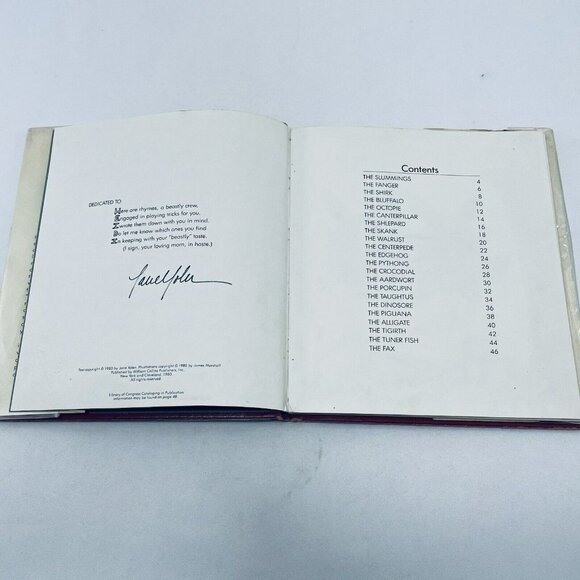 DEDICATED TO
Here are rhymes, a beastly crew,
Engaged in playing tricks for you.
I wrote them down with you in mind.
Do let me know which ones you find
In keeping with your "beastly" taste.
(I sign, your loving mom, in haste.)
Jane Yolen
Text copyright © 1980 by Jane Yolen. Illustrations copyright © 1980 by James Marshall
Published by William Collins Publishers, Inc.,
New York and Cleveland, 1980.
All rights reserved.
Library of Congress Cataloging in Publication
information may be found on page 48.
Contents
THE SLUMMINGS 4
THE FANGER 6
THE SHIRK 8
THE BLUFFALO 10
THE OCTOPIE 12
THE CANTERPILLAR 14
THE SHLEPARD 16
THE SKANK 18
THE WALRUST 20
THE CENTERPEDE 22
THE EDGEHOG 24
THE PYTHONG 26
THE CROCODIAL 28
THE AARDWORT 30
THE PORCUPIN 32
THE TAUGHTUS 34
THE DINOSORE 36
THE PIGUANA 38
THE ALLIGATE 40
THE TIGIRTH 42
THE TUNER FISH 44
THE FAX 46